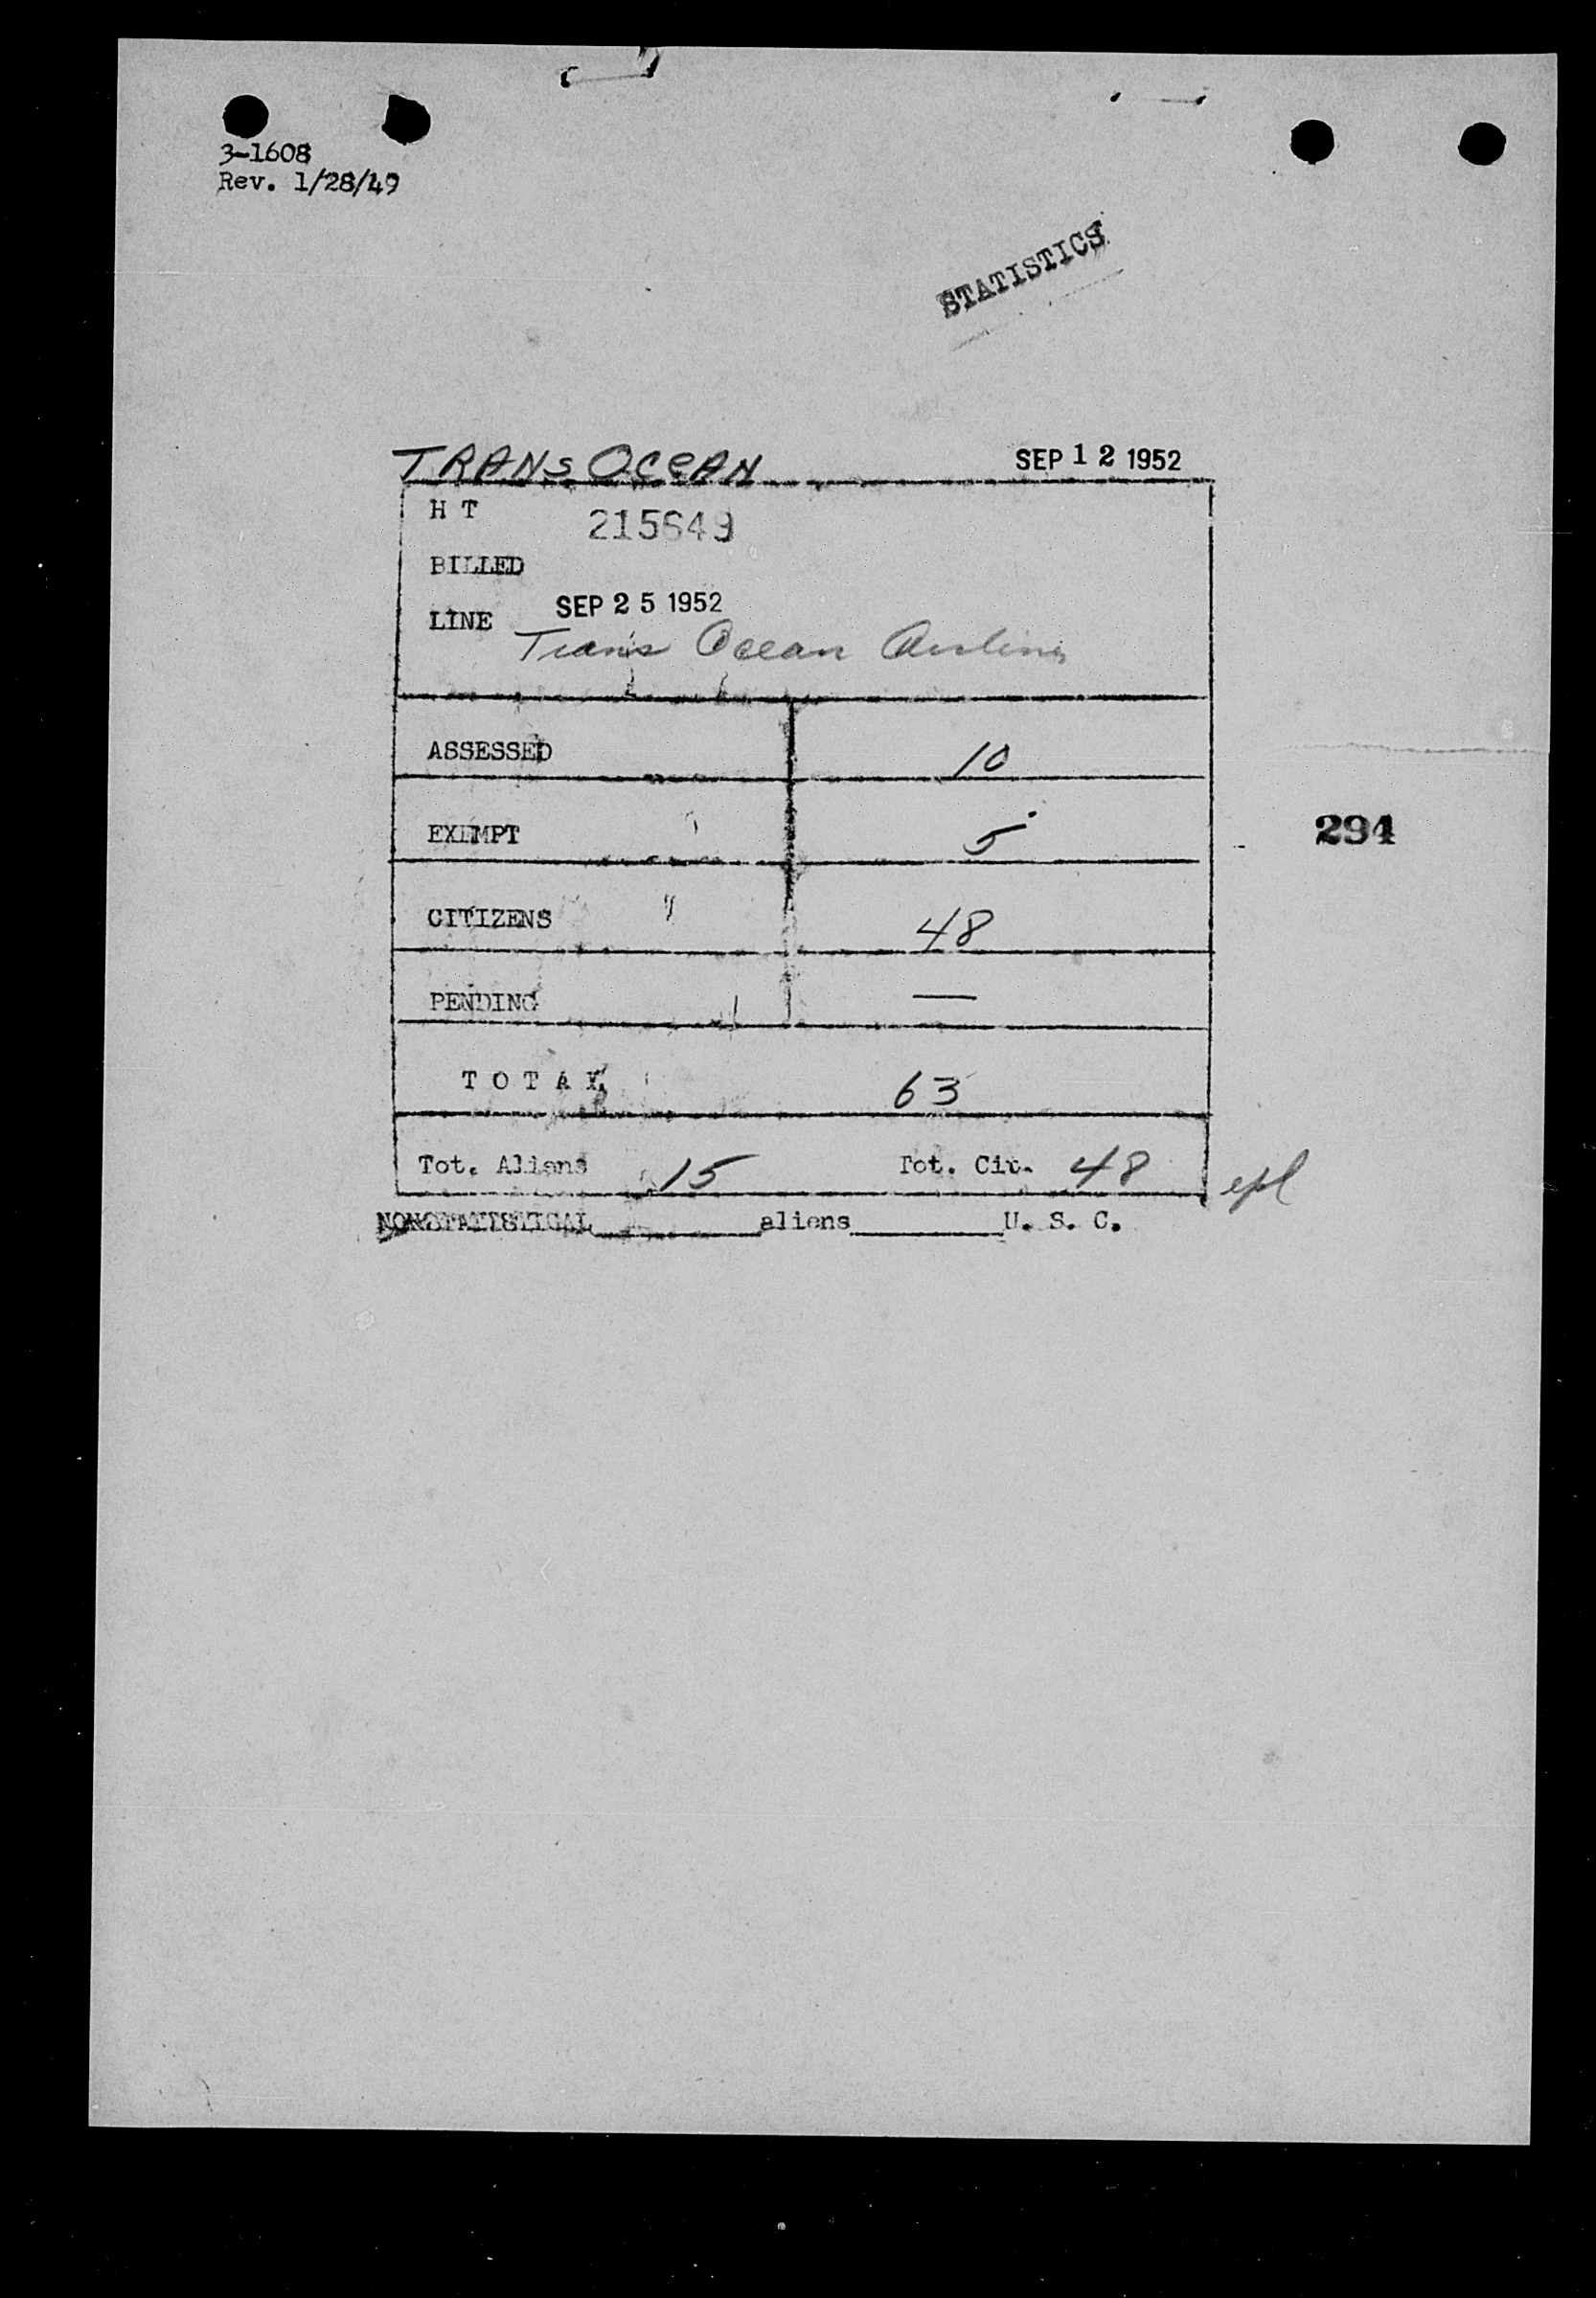 3-1608
Rev. 1/28/49
STATISTICS
TRANS OCEAN SEP 12 1952
H T 215649
BILLED
SEP 25 1952
LINE
Trans Ocean Airlines
ASSESSED 10
EXEMPT 5
294
CITIZENS 48
PENDING —
TOTAL 63
Tot. Aliens 15 Tot. Cit. 48 epl
NONSTATISTICAL aliens U. S. C.